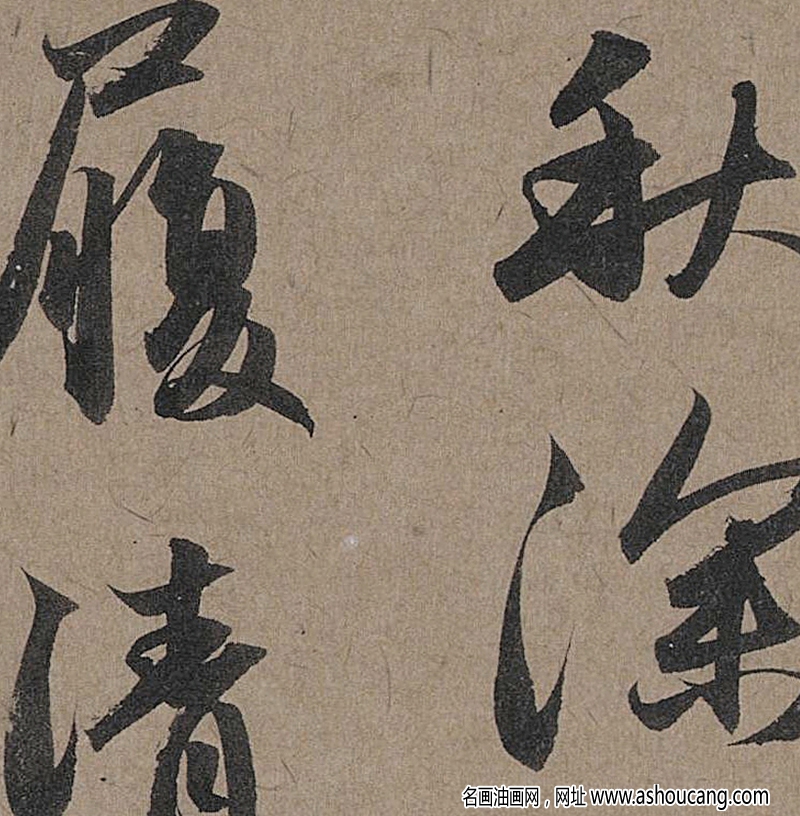 秋深
履清
名画油画网，网址 www.ashoucang.com